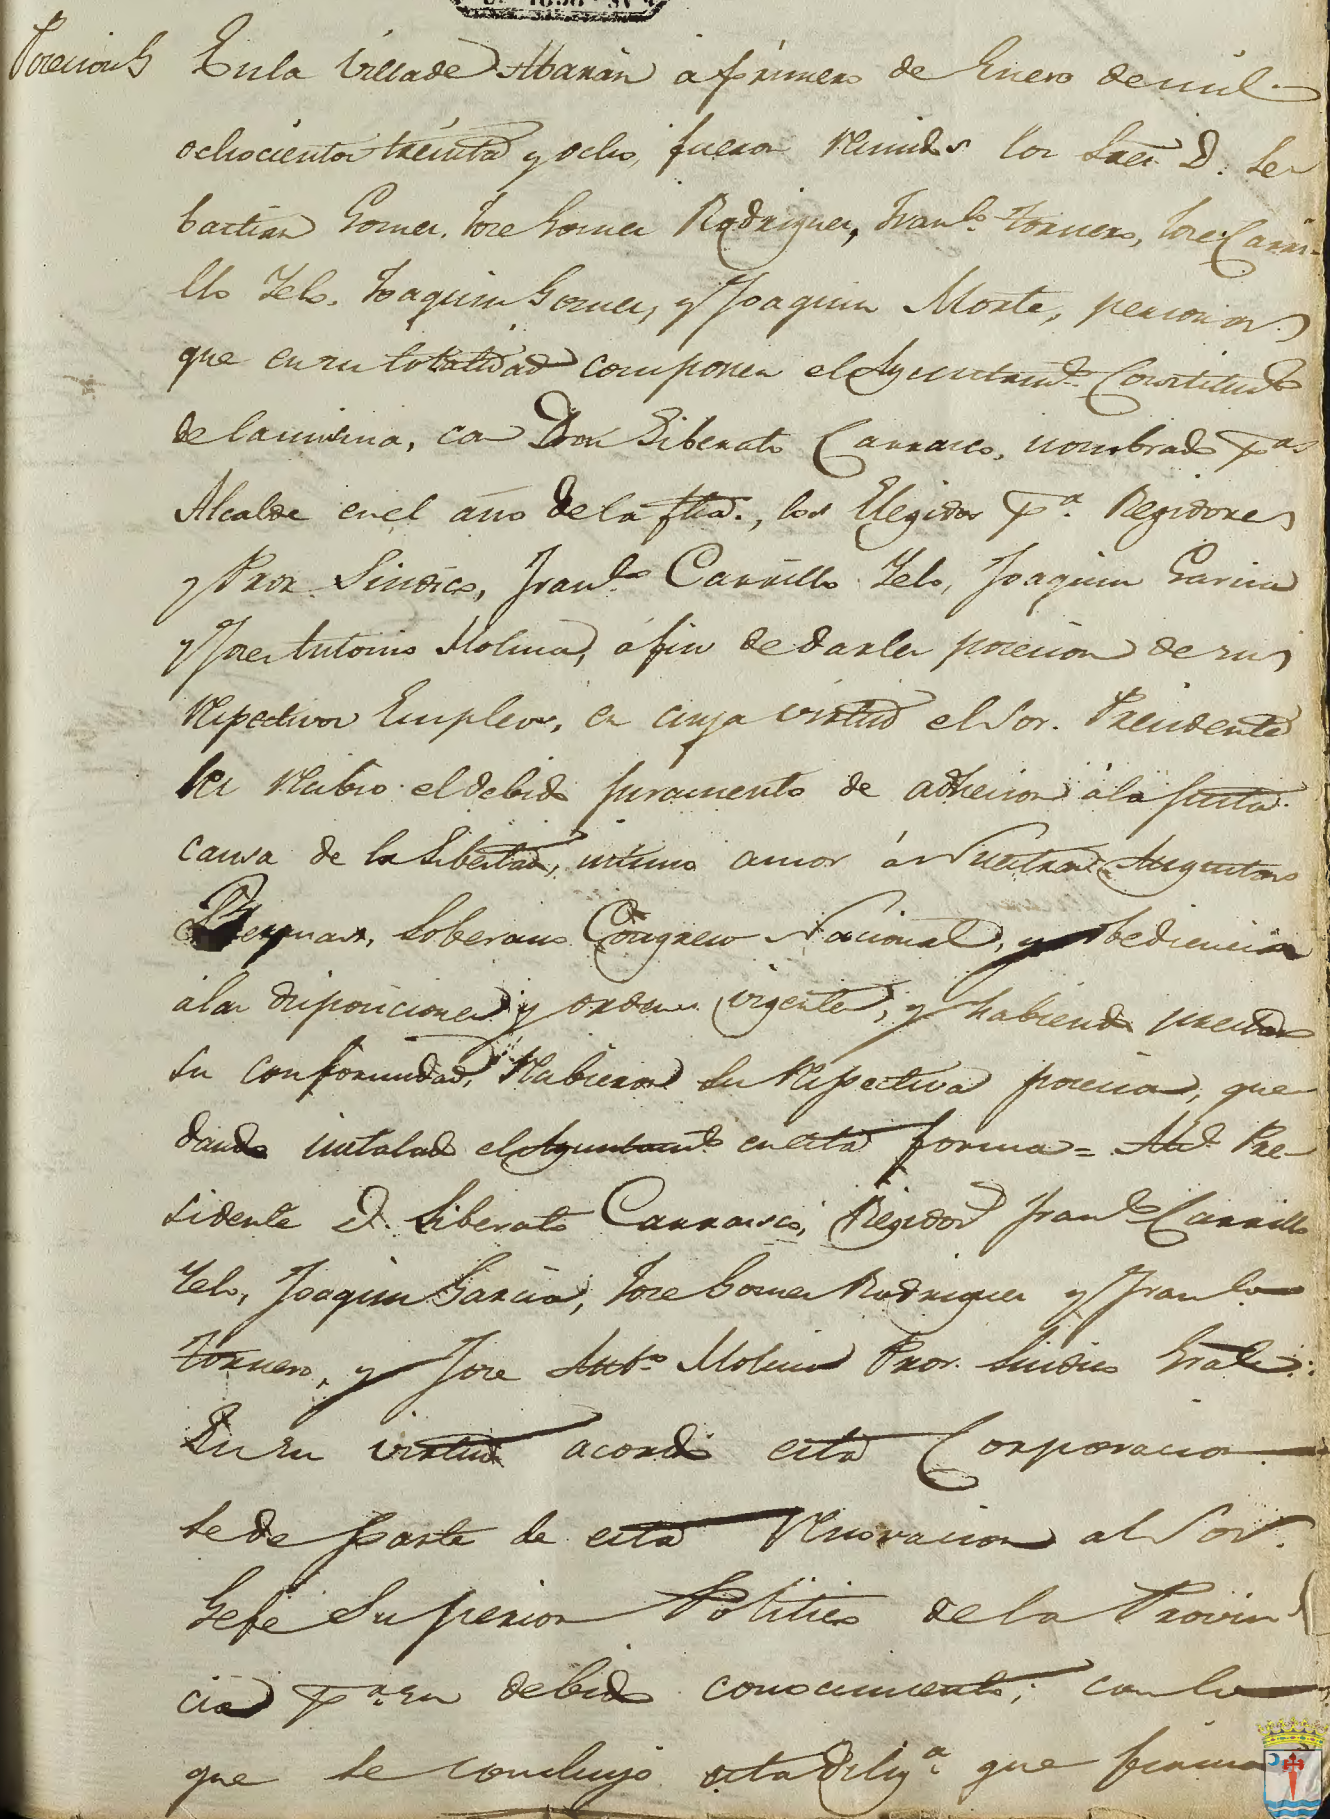 Posecion
En la Villa de Abarán á primero de Enero de mil
ochocientos treinta y ocho, fueron reunidos los Sres. D. Se
bastian Gomez, Jose Gomez Rodriguez, Franco. Tornero, Jose Carri-
llo Yelo, Joaquin Gomez, y Joaquin Morte, personas
que en su totalidad componen el Ayuntamto. Constitucl.
de la misma, con Don Liberato Carrasco, nombrado pa.
Alcalde en el año de la fha., los Elegidos pa. Regidores
y Pror. Sindico, Franco. Carrillo Yelo, Joaquin Garcia
y Jose Antonio Molina, á fin de darles posecion de sus
respectivos Empleos, en cuya virtud el Sor. Presidente
les recibio el debido juramento de adhesion á la justa
causa de la Libertad, intimo amor á Nuestras Augustas
Reynas, Soberano Congreso Nacional, y obediencia
á las disposiciones y ordenes vigentes, y habiendo prestado
su conformidad, recibieron su respectiva posecion, que
dando instalado el Ayuntamto. en esta forma = Alce. Pre-
sidente D. Liberato Carrasco, Regidores Franco. Carrillo
Yelo, Joaquin Garcia, Jose Gomez Rodriguez y Franco.
Tornero, y Jose Anto. Molina Pror. Sindico Gral.:
En su virtud acordó esta Corporacion
se de parte de esta renovacion al Sor.
Gefe Superior Politico de la Provin
cia pa. su debido conocimiento; con lo
que se concluyó esta diliga. que firma